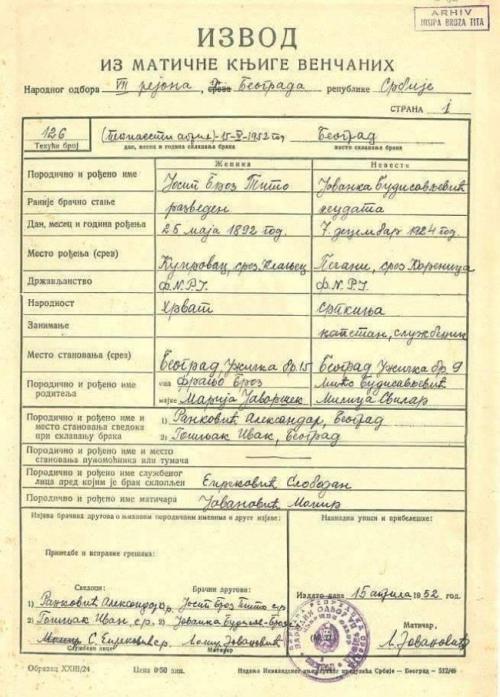 ARHIV
JOSIPA BROZA TITA
ИЗВОД
ИЗ МАТИЧНЕ КЊИГЕ ВЕНЧАНИХ
Народног одбора VII рејона, Београда републике Србије
СТРАНА 1
126 (Петнаести април) 15-IV-1952 год Београд
Текући број дан, месец и година склапања брака место склапања брака
Женика Невесте
Породично и рођено име Јосип Броз Тито Јованка Будисављевић
Раније брачно стање разведен неудата
Дан, месец и година рођења 25 маја 1892 год. 7. децембар 1924 год.
Место рођења (срез) Купровац, срез Клањец Пећани, срез Кореница
Држављанство Ф.Н.Р.Ј. Ф.Н.Р.Ј.
Народност Хрват српкиња
Занимање капетан, службеник
Место становања (срез) Београд, Ужичка бр. 15 Београд Ужичка бр. 9
Породично и рођено име родитеља
оца Фрањо Броз Мићо Будисављевић
мајке Марија Јаворшек Милица Свилар
Породично и рођено име и место становања сведока при склапању брака
1) Ранковић Александар, Београд
2) Гошњак Иван, Београд
Породично и рођено име и место становања пуномоћника или тумача
Породично и рођено име службеног лица пред којим је брак склопљен Слободан
Породично и рођено име матичара Јовановић Момир
Изјава брачних другова о њиховим породичним именима и друге изјаве: Накнадни уписи и прибелешке:
Примедбе и исправке грешака:
Сведоци: Брачни другови:
1) Ранковић Александар, Јосип Броз Тито с.р.
2) Гошњак Иван с.р. Јованка Будисављ-Броз
Јовановић
Службени лице Матичар
Издато дана 15 априла 1952. год.
Матичар,
Јовановић
Образац XXIII/24 Цена 0·50 дин. Србије — Београд — 512/49